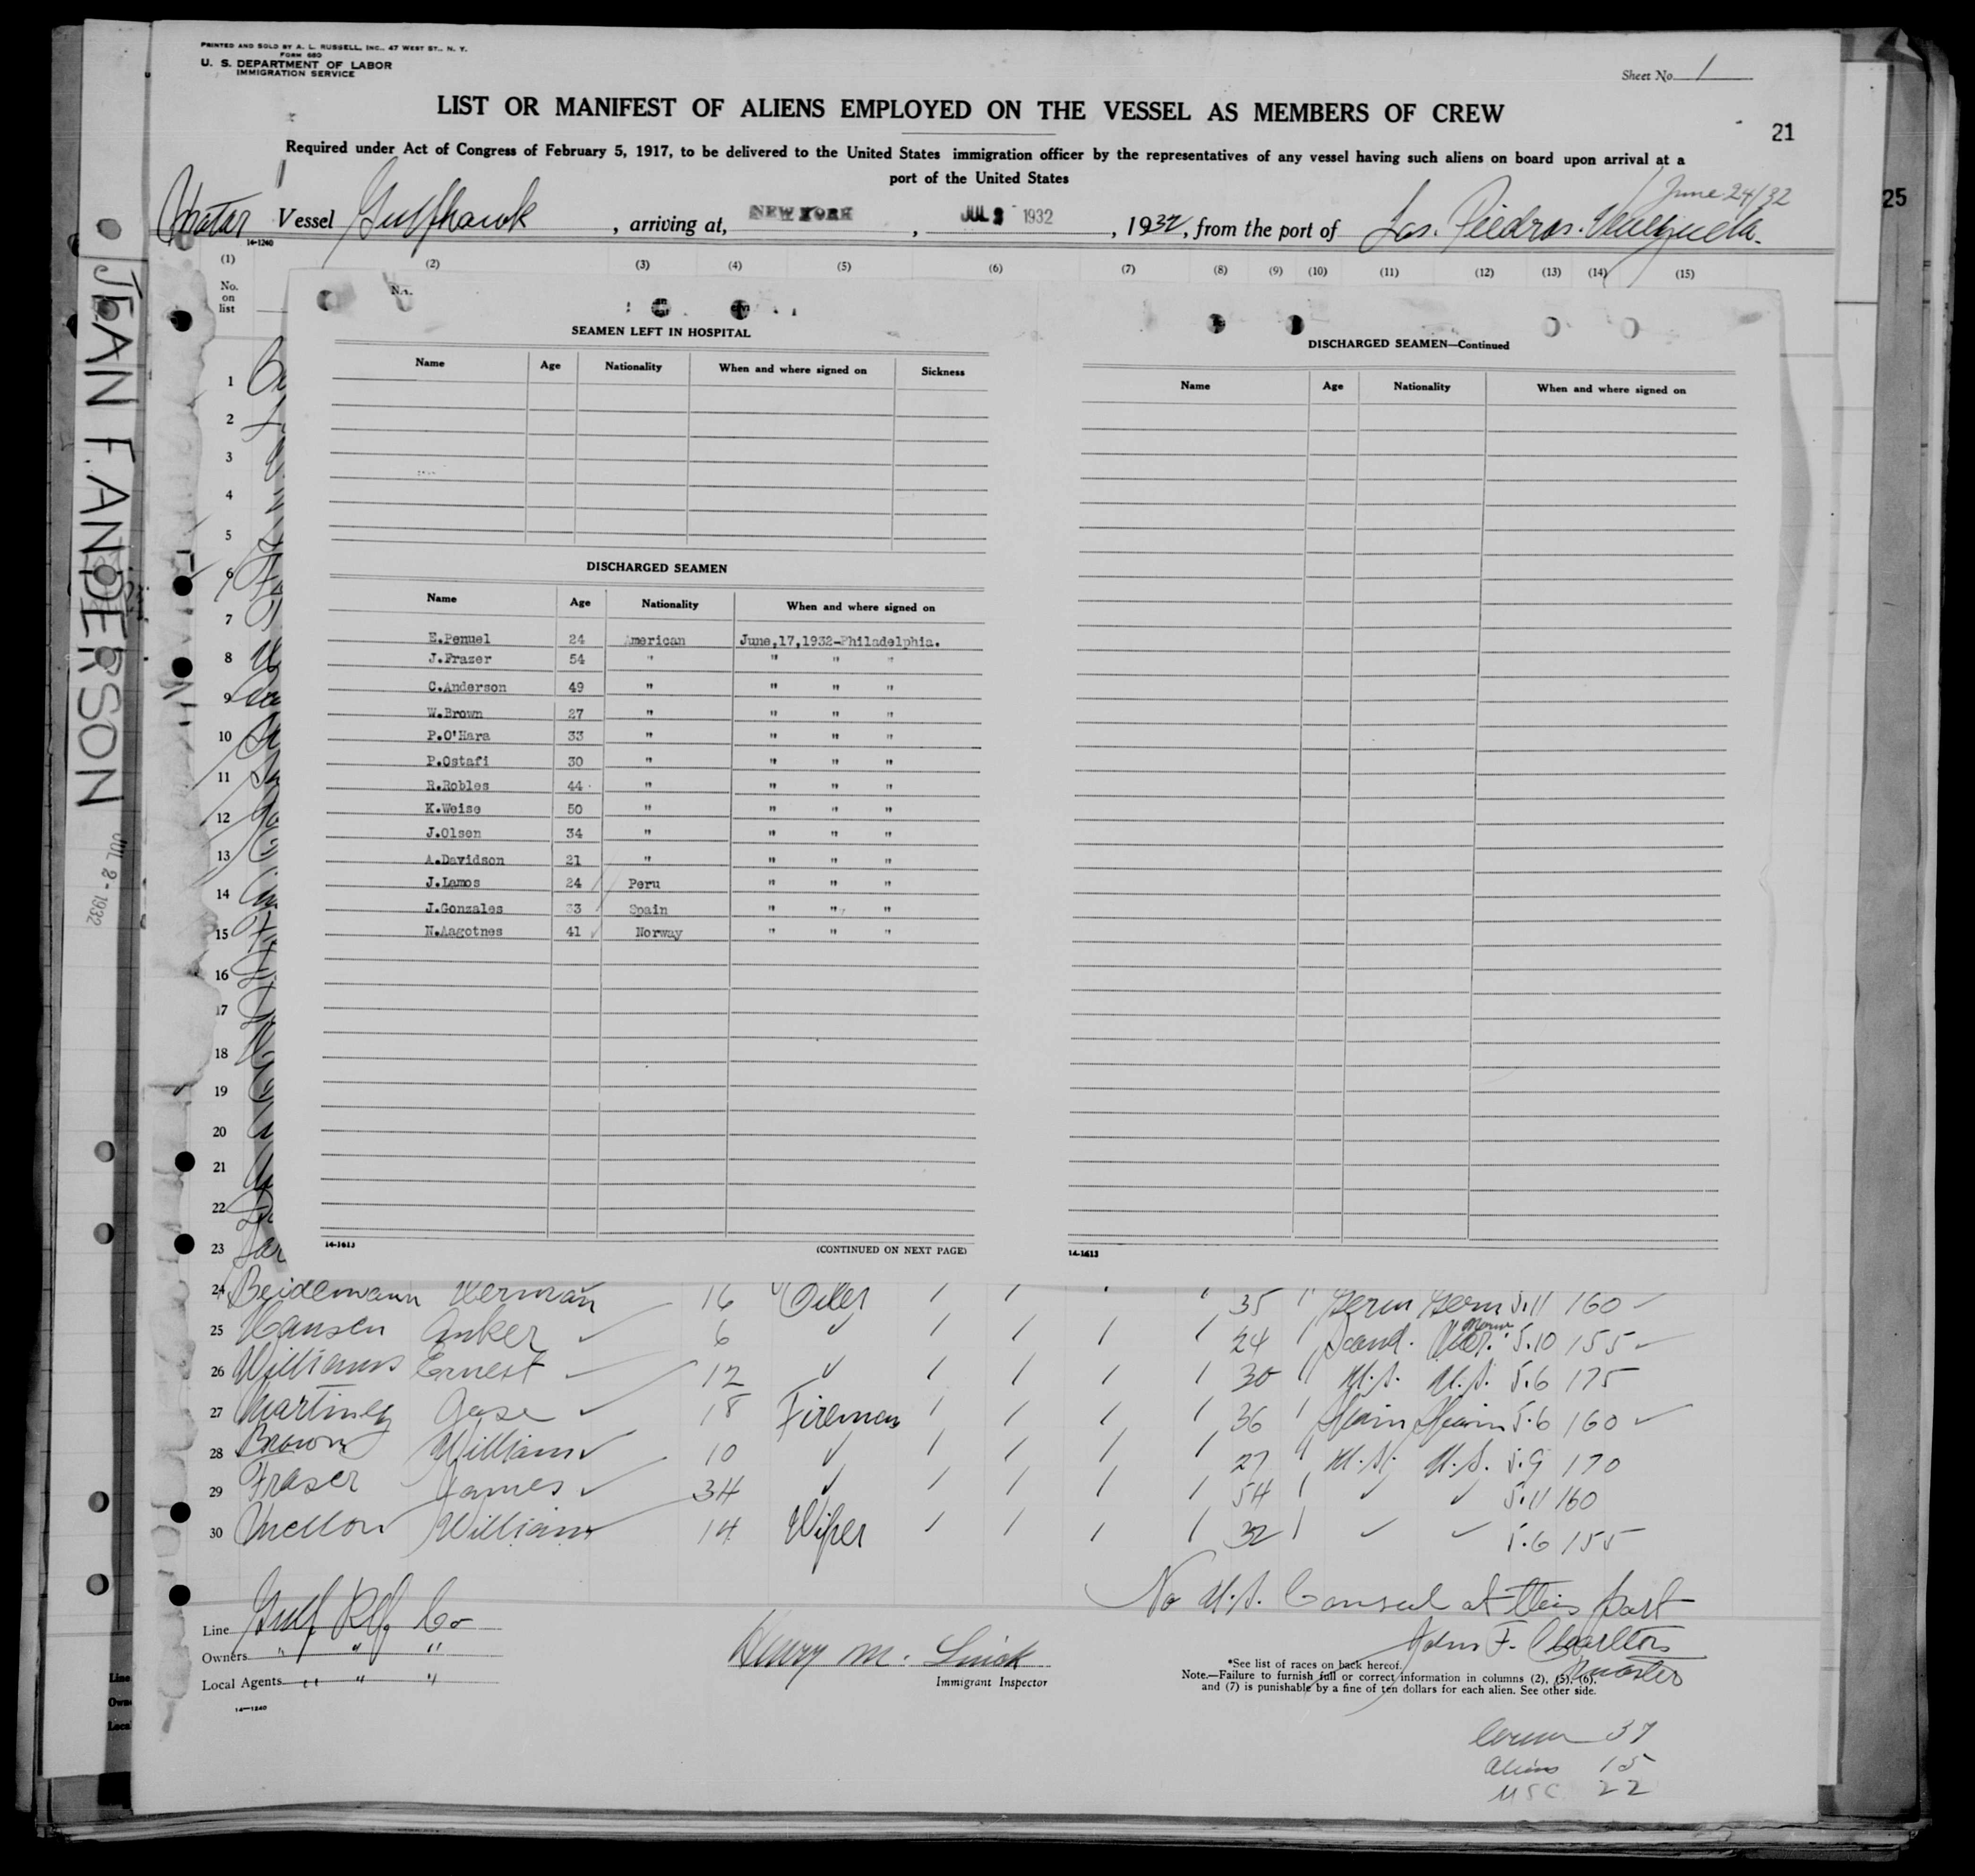 PRINTED AND SOLD BY A. L. RUSSELL, INC., 47 WEST ST., N. Y.
FORM 680
U. S. DEPARTMENT OF LABOR
IMMIGRATION SERVICE
Sheet No. 1
LIST OR MANIFEST OF ALIENS EMPLOYED ON THE VESSEL AS MEMBERS OF CREW
21
Required under Act of Congress of February 5, 1917, to be delivered to the United States immigration officer by the representatives of any vessel having such aliens on board upon arrival at a
port of the United States
June 24/32
25
Vessel Gulfhawk, arriving at, NEW YORK, JUL 1932, 1932, from the port of Las. Piedras.
14-1240
(1) (2) (3) (4) (5) (6) (7) (8) (9) (10) (11) (12) (13) (14) (15)
No. on list
JEAN F. ANDERSON
JUL 2 - 1932
SEAMEN LEFT IN HOSPITAL
Name Age Nationality When and where signed on Sickness
DISCHARGED SEAMEN
Name Age Nationality When and where signed on
E.Penuel 24 American June,17,1932-Philadelphia.
J.Frazer 54 " " " "
C.Anderson 49 " " " "
W.Brown 27 " " " "
P.O'Hara 33 " " " "
P.Ostafi 30 " " " "
R.Robles 44 " " " "
K.Weise 50 " " " "
J.Olsen 34 " " " "
A.Davidson 21 " " " "
J.Lamos 24 Peru " " "
J.Gonzales 33 Spain " " "
N.Aagotnes 41 Norway " " "
14-1613
(CONTINUED ON NEXT PAGE)
DISCHARGED SEAMEN—Continued
Name Age Nationality When and where signed on
14-1613
1
2
3
4
5
6
7
8
9
10
11
12
13
14
15
16
17
18
19
20
21
22
23
24 Beidemann Herman 16 Oiler 35 Germ Germ 5.11 160
25 Hansen Anker 6 24 Scand. 5.10 155
26 Williams Ernest 12 30 U.S. U.S. 5.6 175
27 Martinez Jose 18 Fireman 36 Spain Spain 5.6 160
28 Brown William 10 27 U.S. U.S. 5.9 170
29 Fraser James 34 54 5.11 160
30 Mellon William 14 Wiper 32 5.6 155
No U.S. Consul at this port
John F. Charlton
Master
Line Gulf Rfg Co
Owners " " "
Local Agents " " "
14—1240
Henry M.
Immigrant Inspector
*See list of races on back hereof.
Note.—Failure to furnish full or correct information in columns (2), (5), (6),
and (7) is punishable by a fine of ten dollars for each alien. See other side.
37
Aliens 15
USC 22
Line